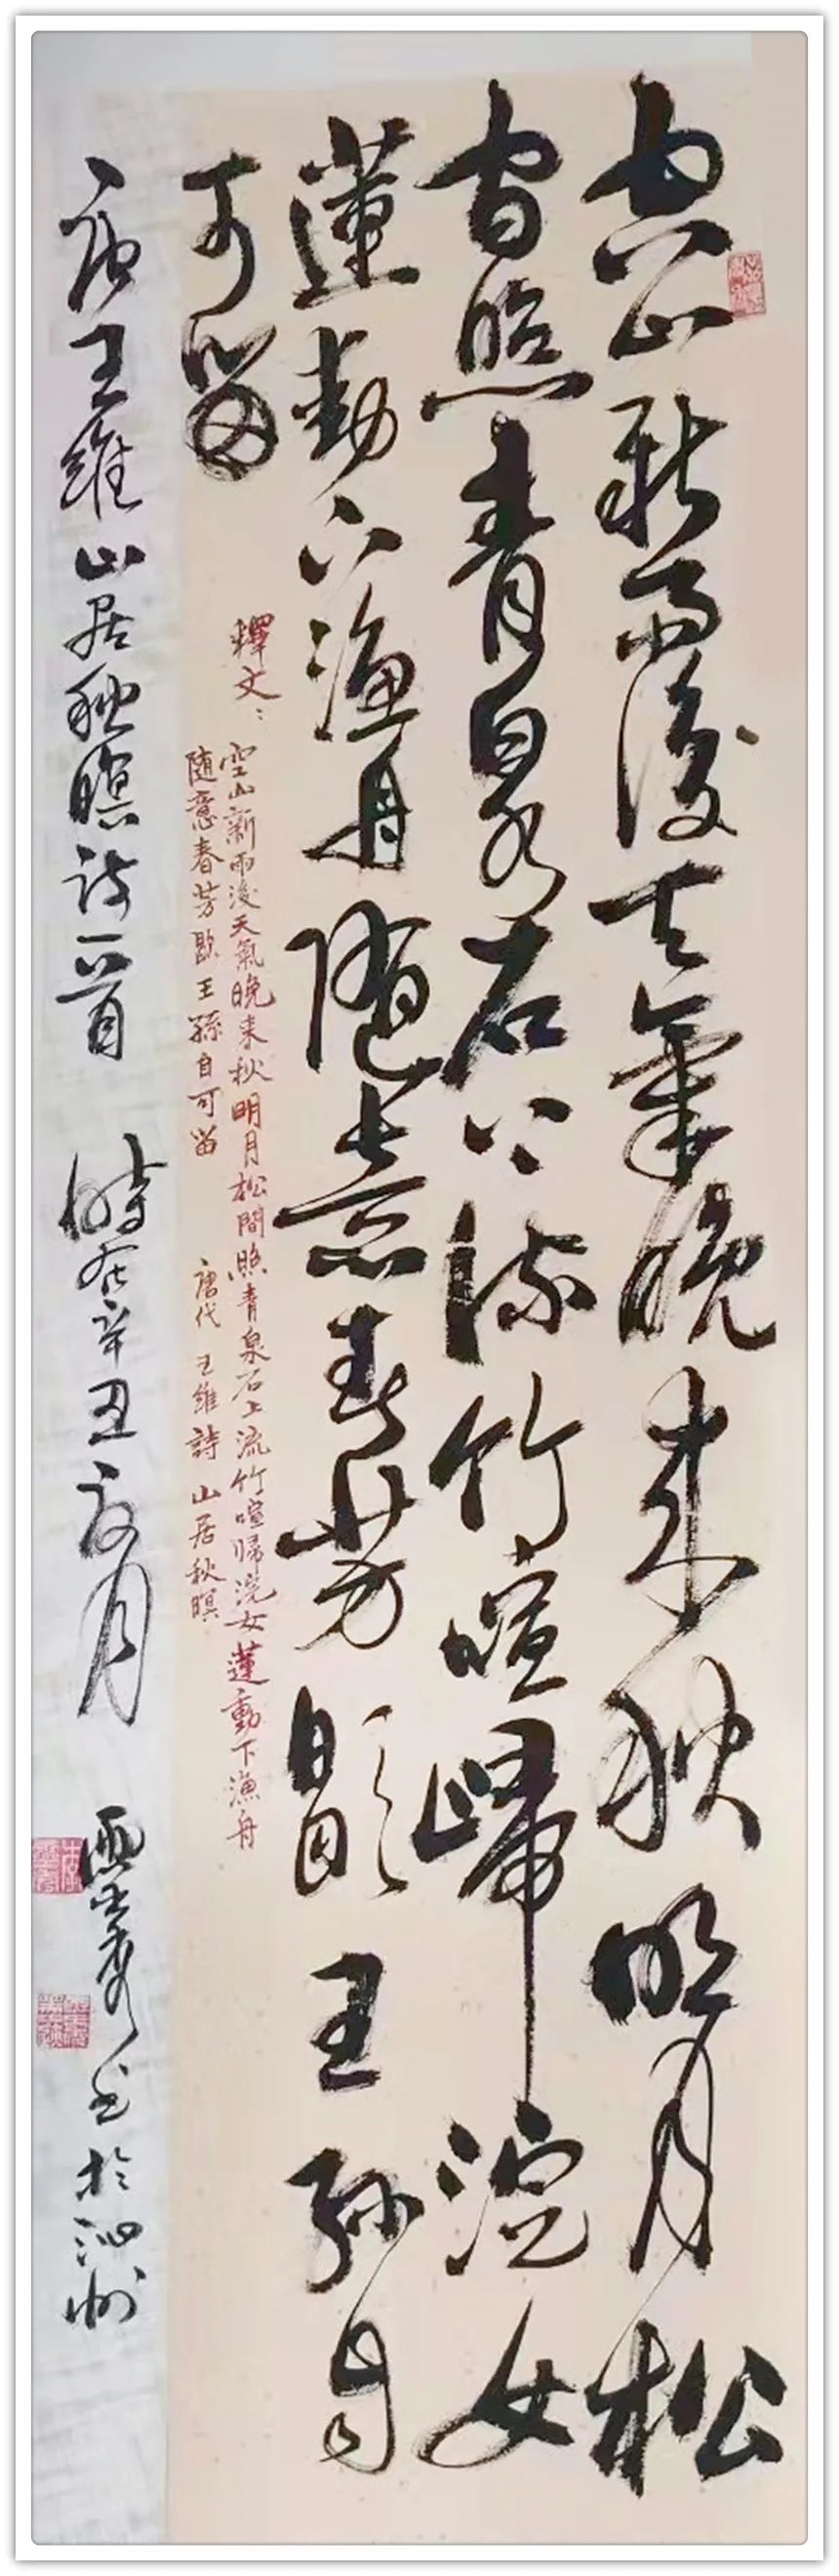 空山新雨後天氣晚来秋明月松
間照青泉石上流竹喧歸浣女
蓮動下漁舟随意春芳歇王孫自
可留
釋文：
空山新雨後天氣晚来秋明月松間照青泉石上流竹喧歸浣女蓮動下漁舟
随意春芳歇王孫自可留 唐代 王維詩 山居秋暝
唐王維山居秋暝詩一首 時在辛丑 月 書於沁州